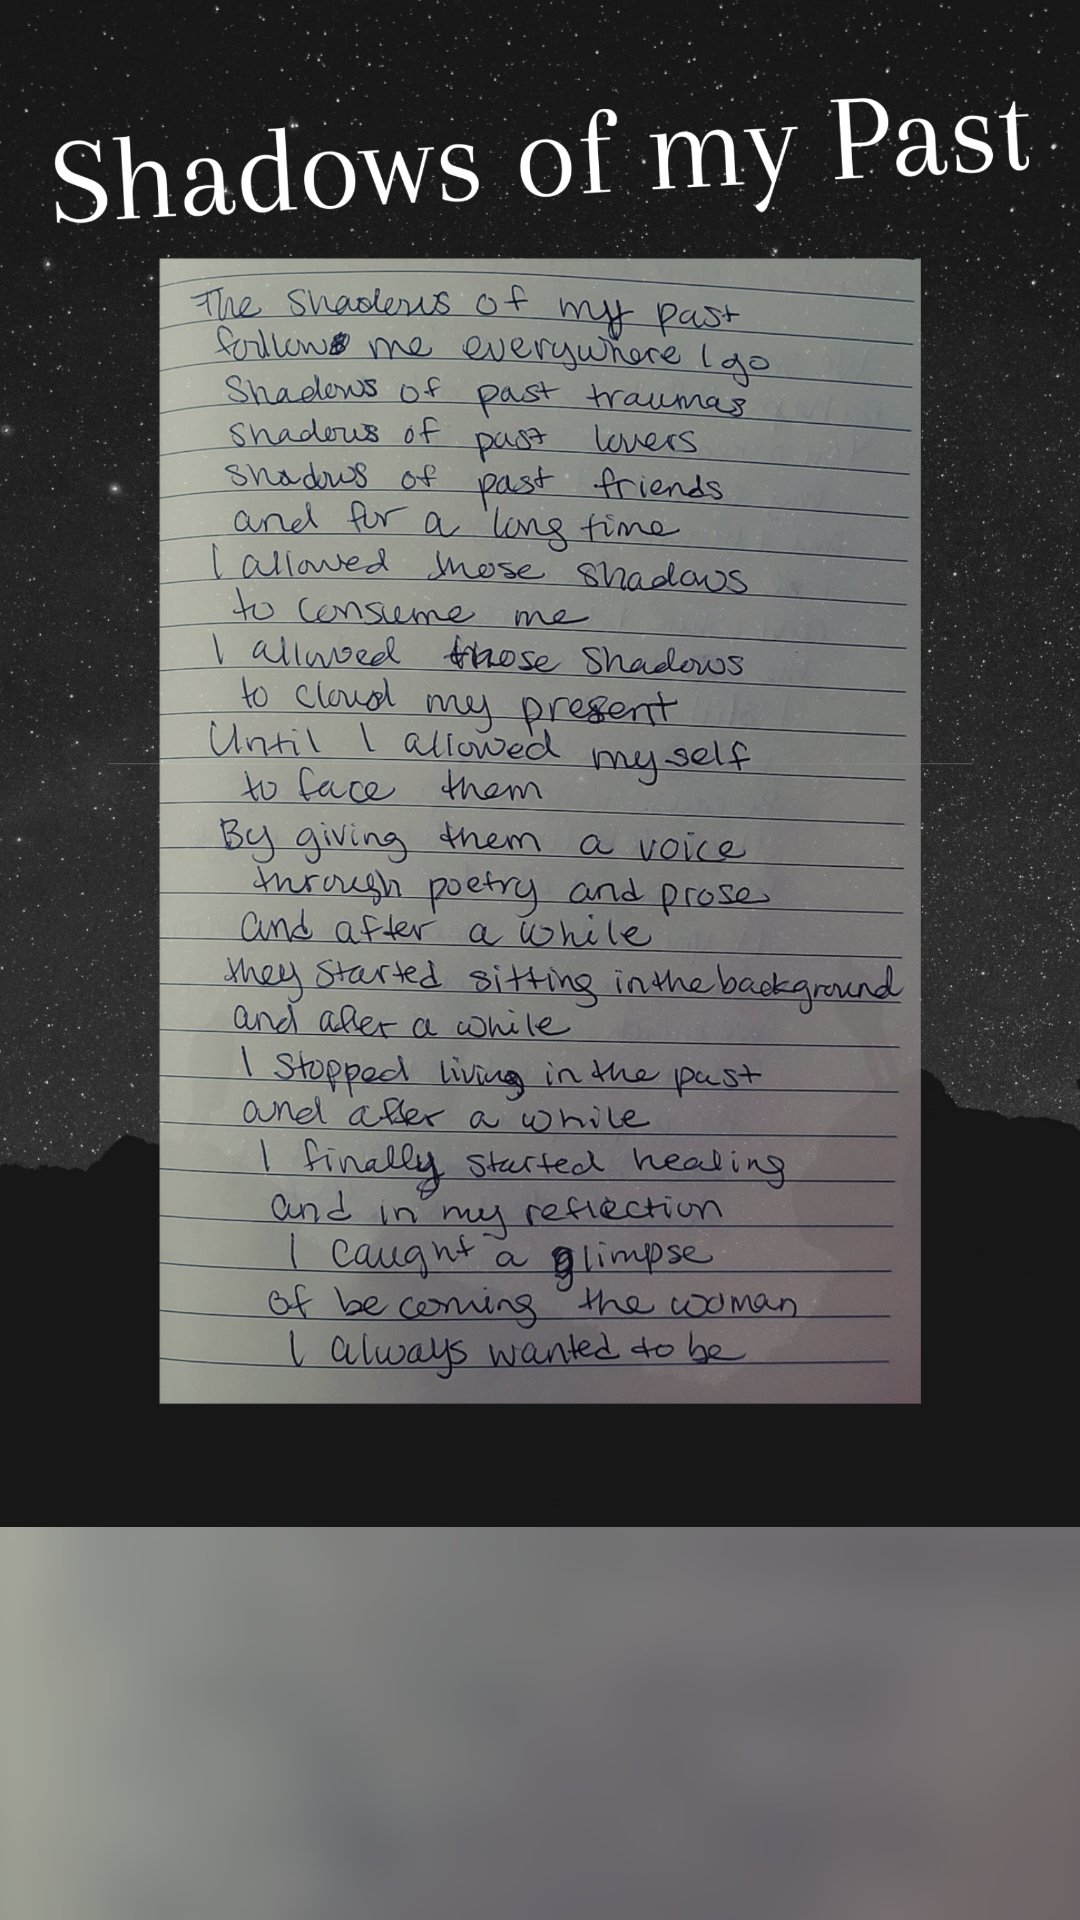 Shadows of my Past
The Shadows of my past
follow me everywhere I go
Shadows of past traumas
shadows of past lovers
shadows of past friends
and for a long time
I allowed those shadows
to consume me
I allowed those shadows
to cloud my present
Until I allowed myself
to face them
By giving them a voice
through poetry and prose
and after a while
they started sitting in the background
and after a while
I stopped living in the past
and after a while
I finally started healing
and in my reflection
I caught a glimpse
of becoming the woman
I always wanted to be